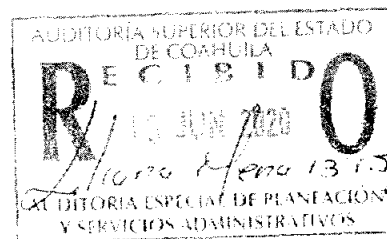 AUDITORÍA SUPERIOR DEL ESTADO
DE COAHUILA
RECIBIDO
JUN 2020
Mena 13:15
AUDITORIA ESPECIAL DE PLANEACIÓN
Y SERVICIOS ADMINISTRATIVOS